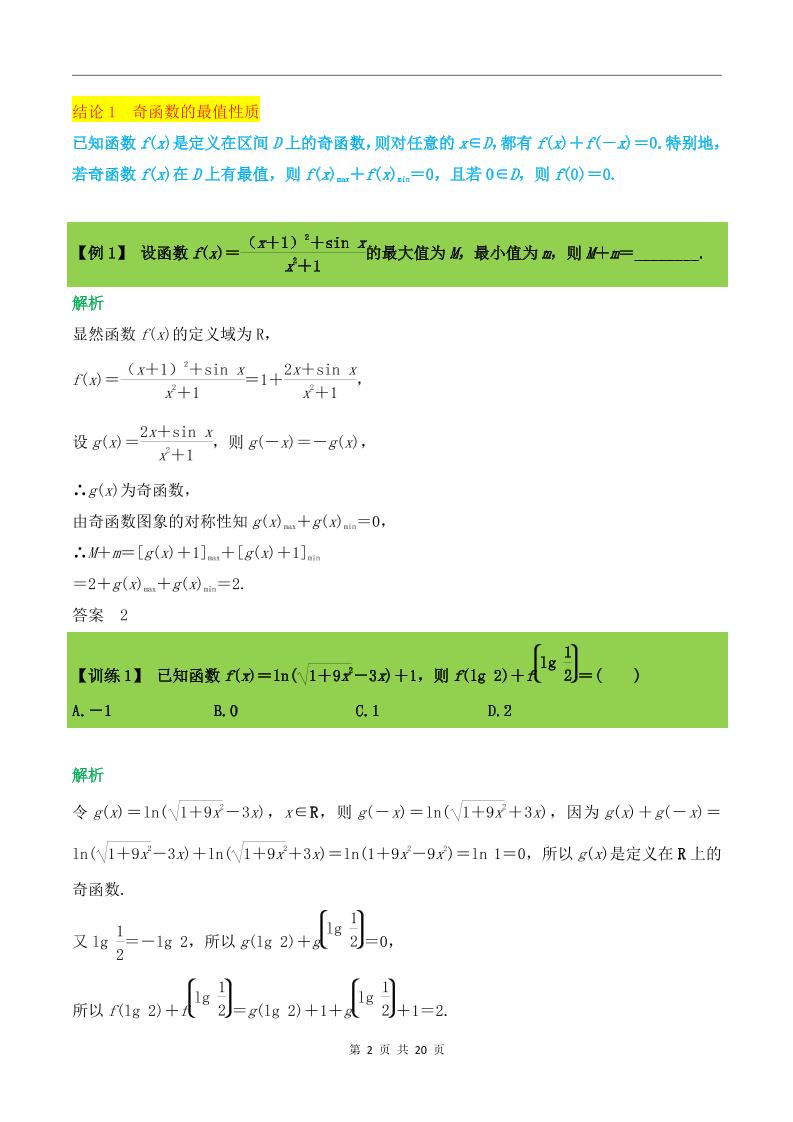 结论 1　奇函数的最值性质
已知函数 f(x)是定义在区间 D 上的奇函数,则对任意的 x∈D,都有 f(x)＋f(－x)＝0.特别地，
若奇函数 f(x)在 D 上有最值，则 f(x)max＋f(x)min＝0，且若 0∈D，则 f(0)＝0.
【例 1】 设函数 f(x)＝（x＋1）²＋sin x/x²＋1的最大值为 M，最小值为 m，则 M＋m＝________.
解析
显然函数 f(x)的定义域为 R，
f(x)＝（x＋1）²＋sin x/x²＋1＝1＋2x＋sin x/x²＋1，
设 g(x)＝2x＋sin x/x²＋1，则 g(－x)＝－g(x)，
∴g(x)为奇函数，
由奇函数图象的对称性知 g(x)max＋g(x)min＝0，
∴M＋m＝[g(x)＋1]max＋[g(x)＋1]min
＝2＋g(x)max＋g(x)min＝2.
答案　2
【训练 1】 已知函数 f(x)＝ln(√1＋9x²－3x)＋1，则 f(lg 2)＋f(lg 1/2)＝(　　)
A.－1　B.0　C.1　D.2
解析
令 g(x)＝ln(√1＋9x²－3x)，x∈R，则 g(－x)＝ln(√1＋9x²＋3x)，因为 g(x)＋g(－x)＝
ln(√1＋9x²－3x)＋ln(√1＋9x²＋3x)＝ln(1＋9x²－9x²)＝ln 1＝0，所以 g(x)是定义在 R 上的
奇函数.
又 lg 1/2＝－lg 2，所以 g(lg 2)＋g(lg 1/2)＝0，
所以 f(lg 2)＋f(lg 1/2)＝g(lg 2)＋1＋g(lg 1/2)＋1＝2.
第 2 页 共 20 页